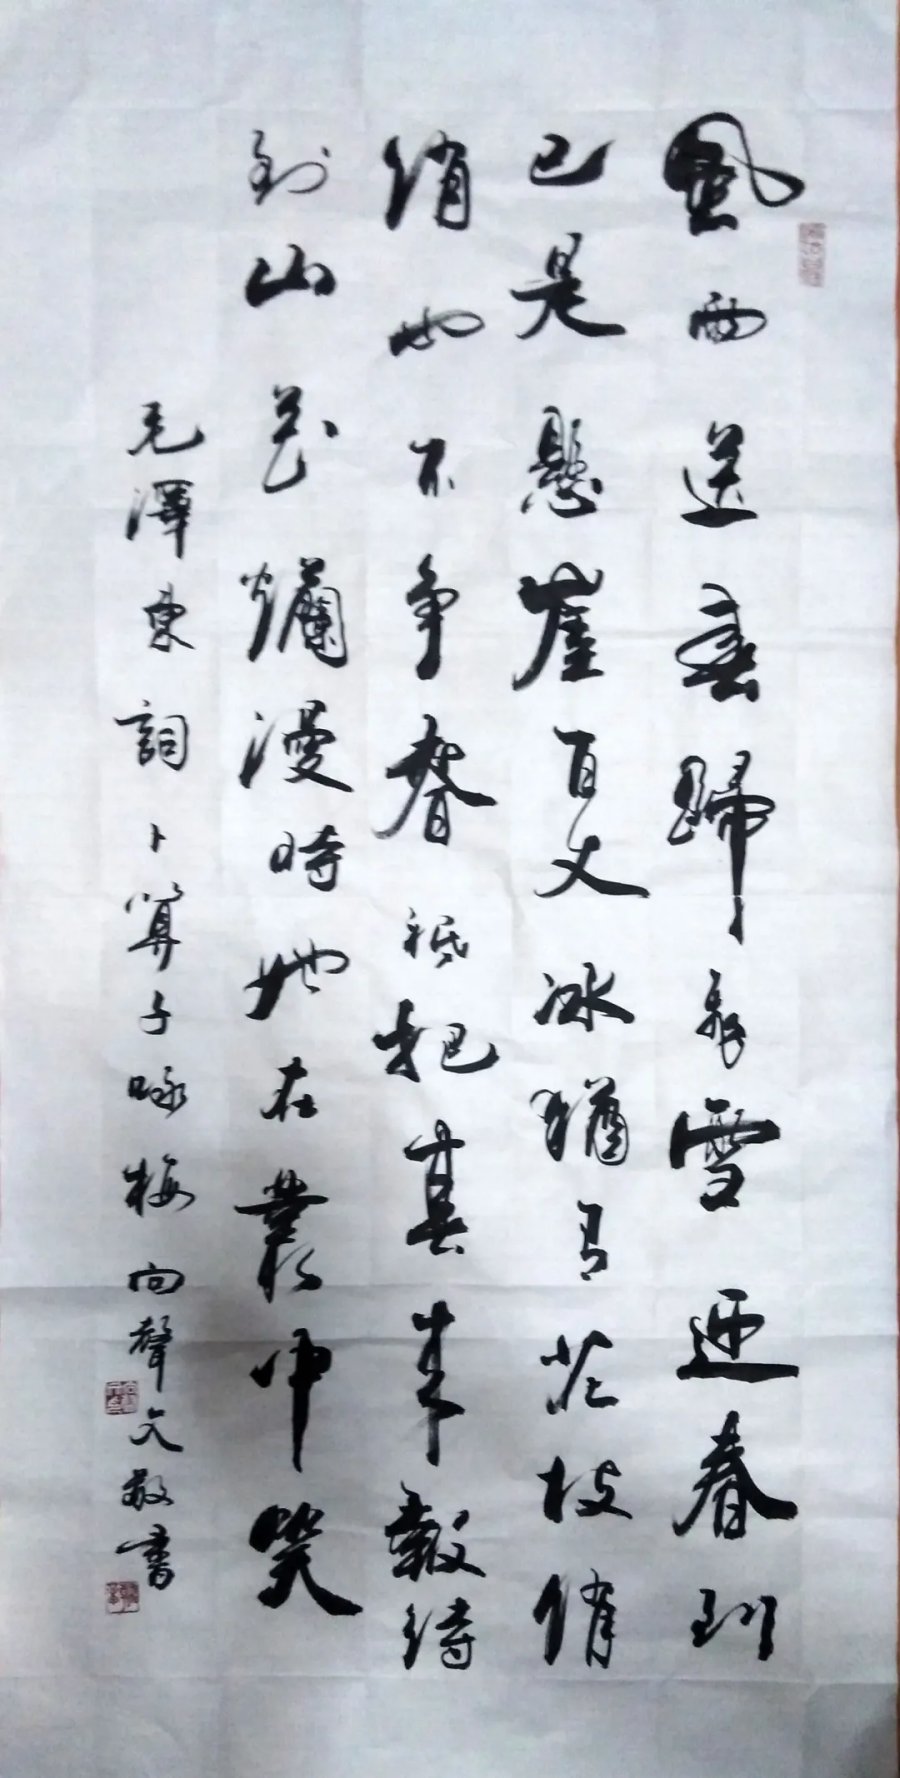 風雨送春歸飛雪迎春到
已是懸崖百丈冰猶有花枝俏
俏也不争春祇把春来報待
到山花爛漫時她在叢中笑
毛澤東詞卜算子咏梅向聲文敬書